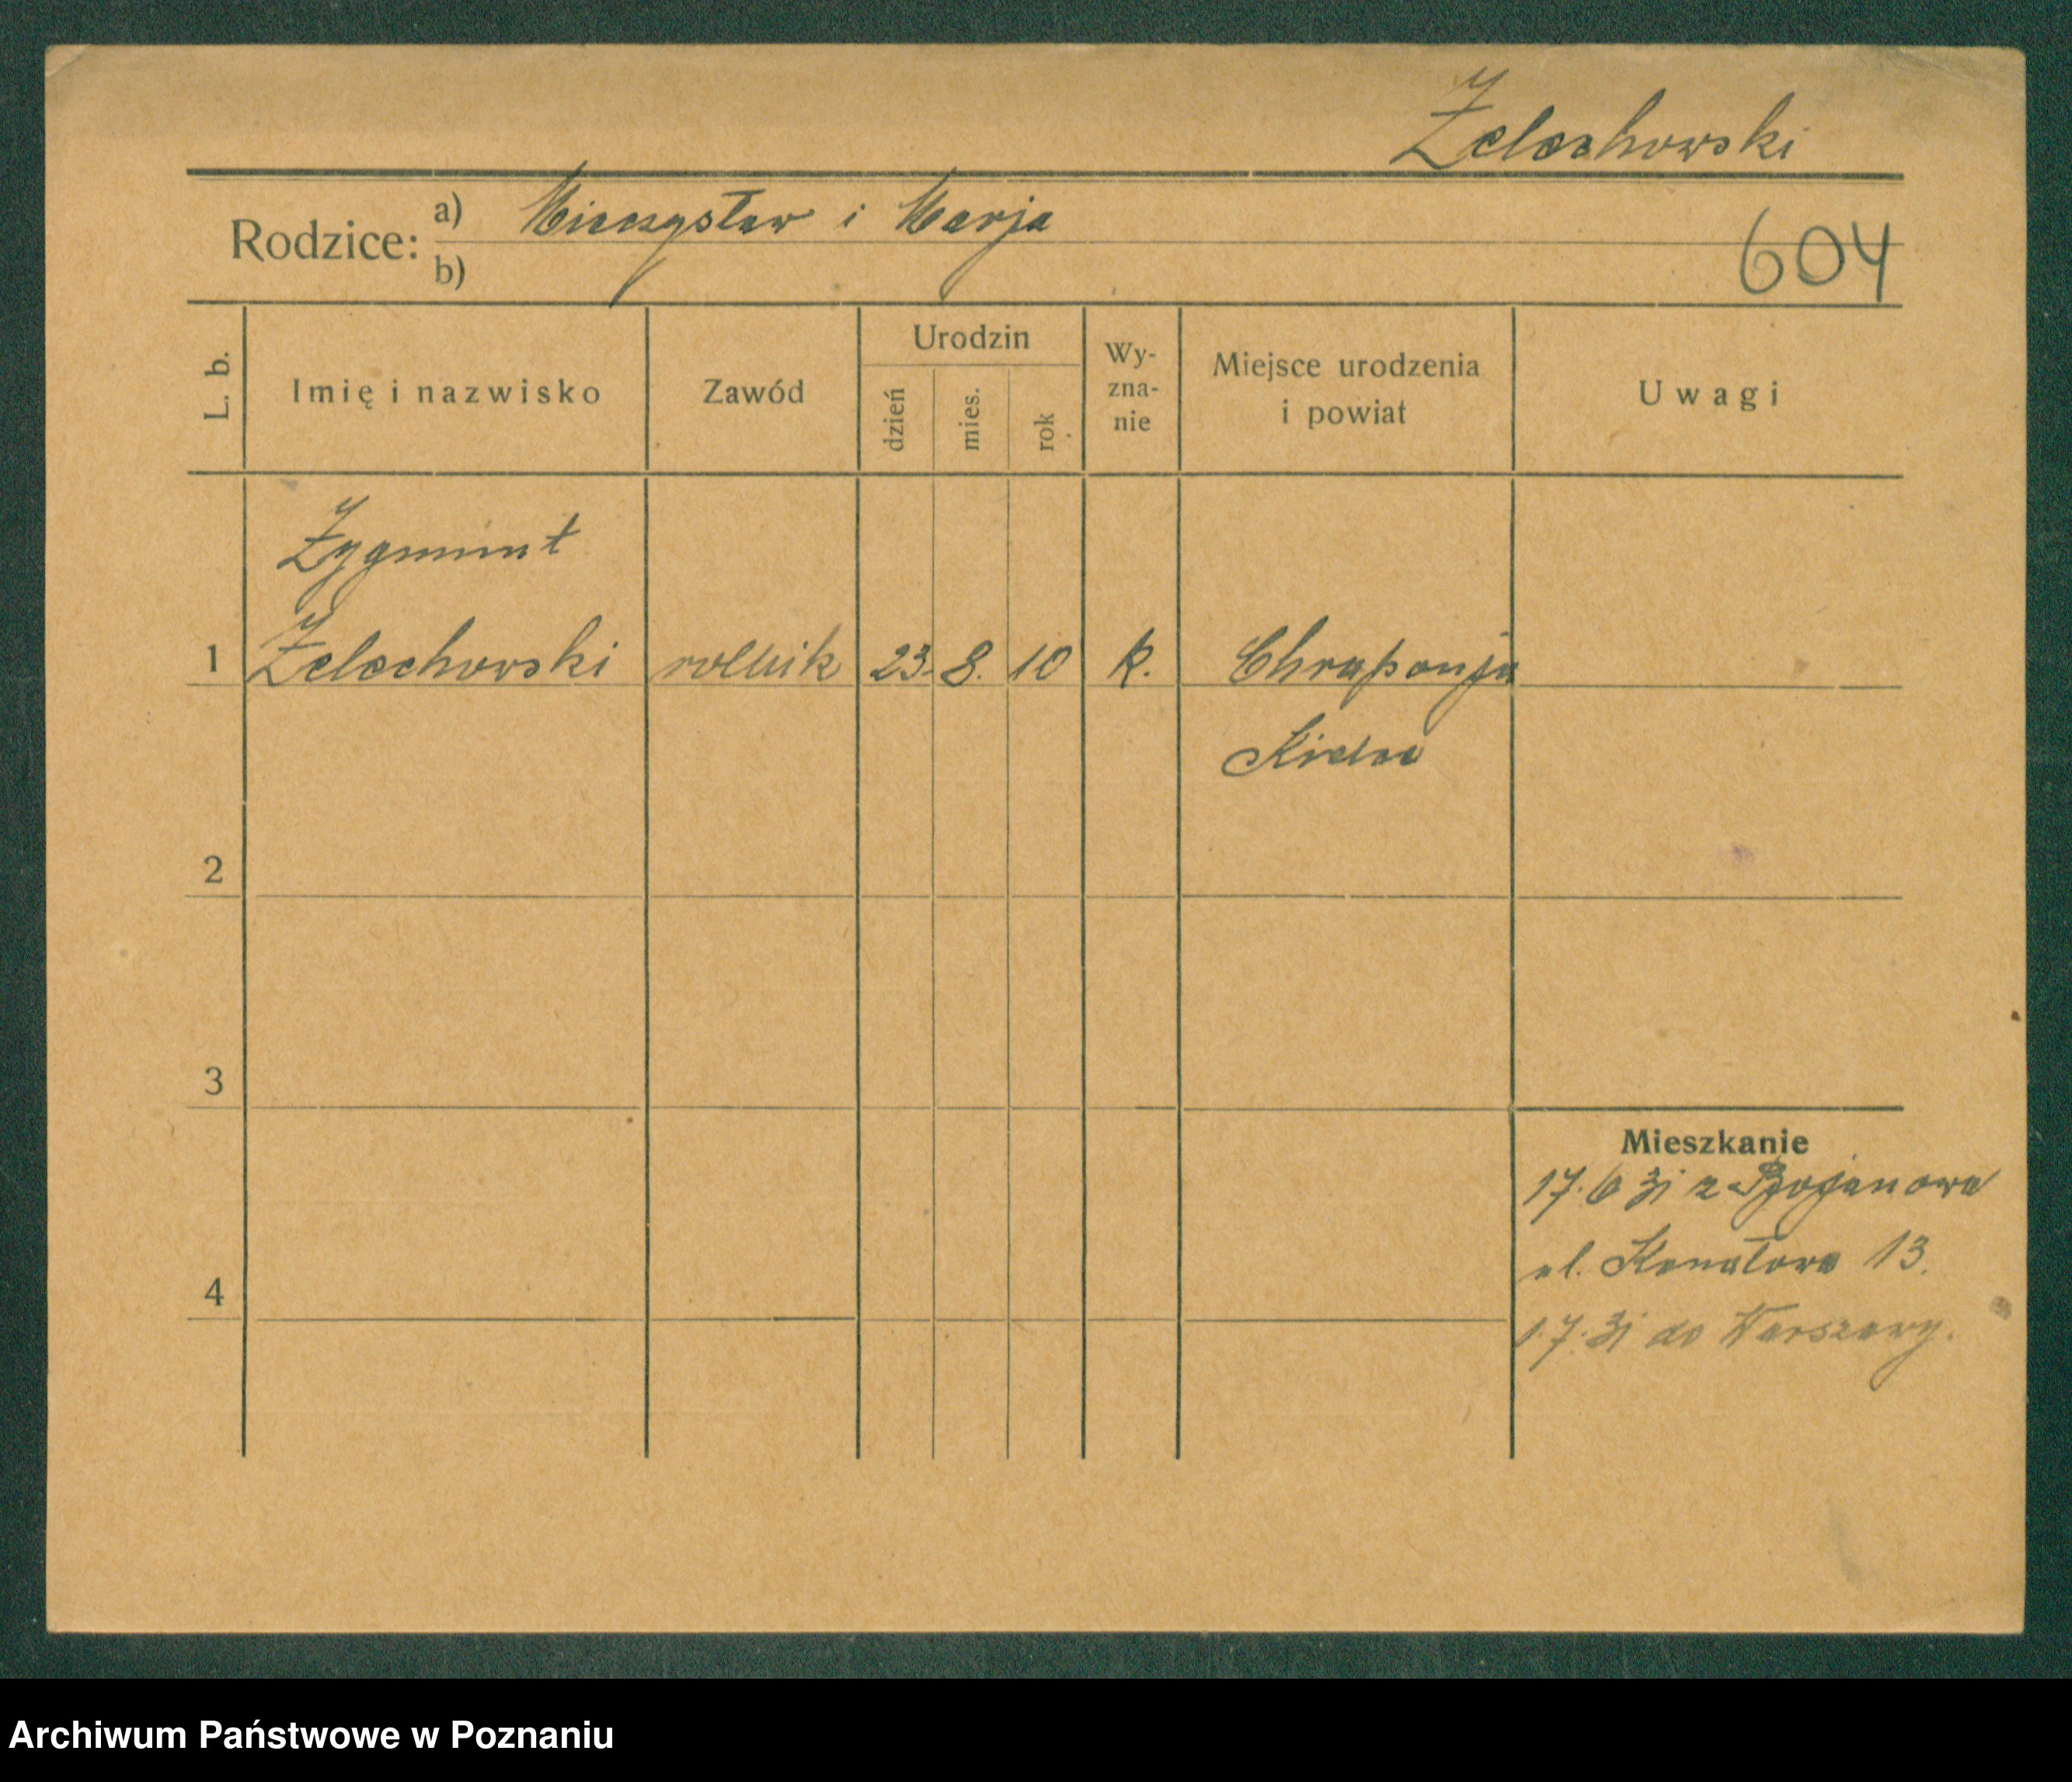 Żelechowski
Rodzice: a) Mieczysław i Marja
b)
604
L. b.
Imię i nazwisko
Zawód
Urodzin
dzień
mies.
rok
Wy-
zna-
nie
Miejsce urodzenia
i powiat
Uwagi
Zygmunt
1 Żelechowski rolnik 23. 8. 10 k. Chraponja
2
3
4
Mieszkanie
17. 6 31 z Bojanowa
ul. Kanałowa 13.
1.7.31 do Warszawy.
Archiwum Państwowe w Poznaniu